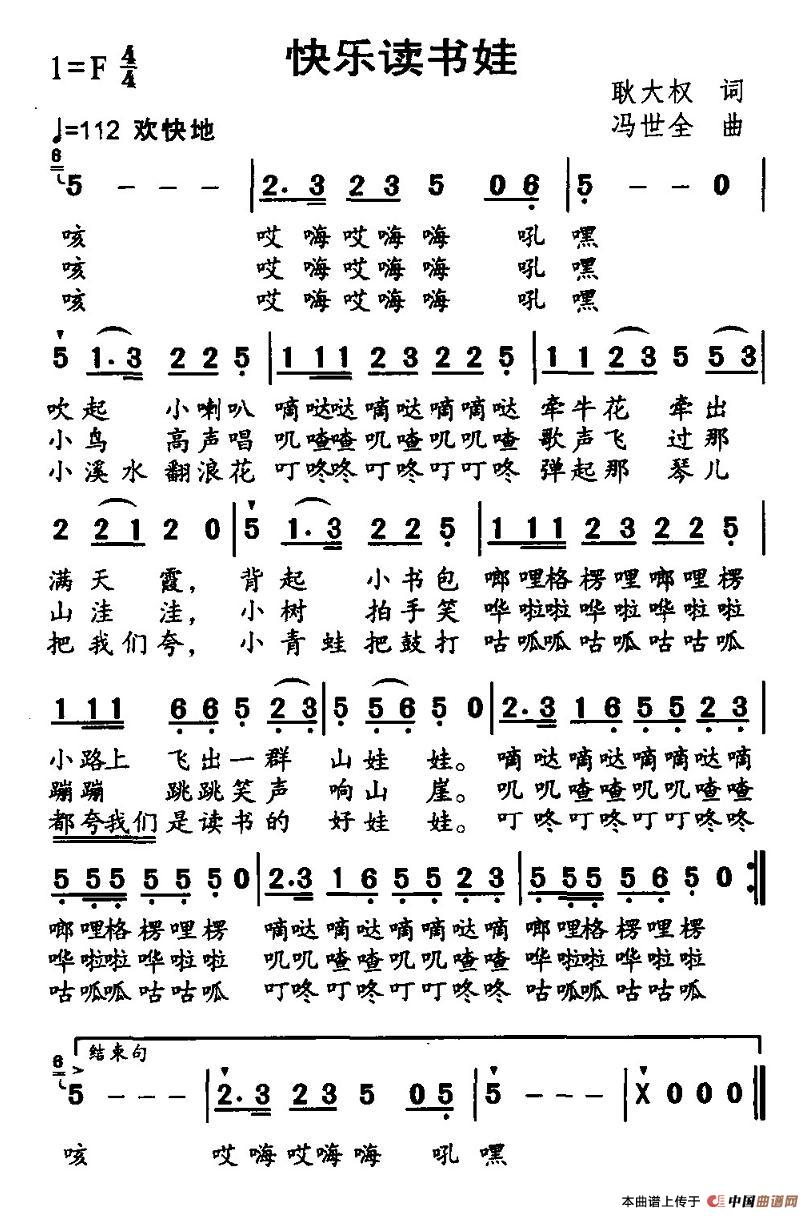 快乐读书娃
1=F 4/4
耿大权 词
♩=112 欢快地
冯世全 曲
6
5 - - - | 2. 3 2 3 5 0 6 | 5 - - 0 |
咳 哎嗨哎嗨嗨 吼 嘿
咳 哎嗨哎嗨嗨 吼 嘿
咳 哎嗨哎嗨嗨 吼 嘿
5 1. 3 2 2 5 | 1 11 2 3 2 2 5 | 1 1 2 3 5 5 3 |
吹起 小喇叭 嘀哒哒嘀哒嘀嘀哒 牵牛花 牵出
小鸟 高声唱 叽喳喳叽喳叽叽喳 歌声飞 过那
小溪水翻浪花 叮咚咚叮咚叮叮咚 弹起那 琴儿
2 2 1 2 0 | 5 1. 3 2 2 5 | 1 11 2 3 2 2 5 |
满天 霞， 背起 小书包 啷哩格楞哩啷哩楞
山洼 洼， 小树 拍手笑 哗啦啦哗啦哗啦啦
把我们夸， 小青蛙把鼓打 咕呱呱咕呱咕咕呱
1 11 6 6 5 2 3 | 5 5 6 5 0 | 2. 3 1 6 5 5 2 3 |
小路上 飞出一群 山娃 娃。 嘀哒嘀哒嘀哒嘀
蹦蹦 跳跳笑声 响山 崖。 叽叽喳喳叽叽喳喳
都夸我们是读书的 好娃 娃。 叮咚叮咚叮叮咚咚
5 55 5 5 5 0 | 2. 3 1 6 5 5 2 3 | 5 55 5 6 5 0 :||
啷哩格楞哩楞 嘀哒嘀哒嘀哒嘀 啷哩格楞哩楞
哗啦啦哗啦啦 叽叽喳喳叽叽喳喳 哗啦啦哗啦啦
咕呱呱咕咕呱 叮咚叮咚叮叮咚咚 咕呱呱咕咕呱
结束句
6
5 - - - | 2. 3 2 3 5 0 5 | 5 - - - | X 0 0 0 ||
咳 哎嗨哎嗨嗨 吼 嘿
本曲谱上传于 中国曲谱网